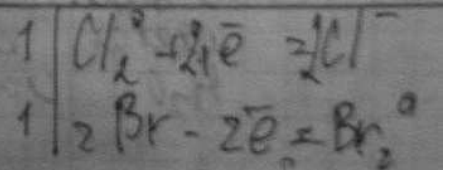 1 | Cl₂⁰ + 2ē = 2Cl⁻
1 | 2Br - 2ē = Br₂⁰